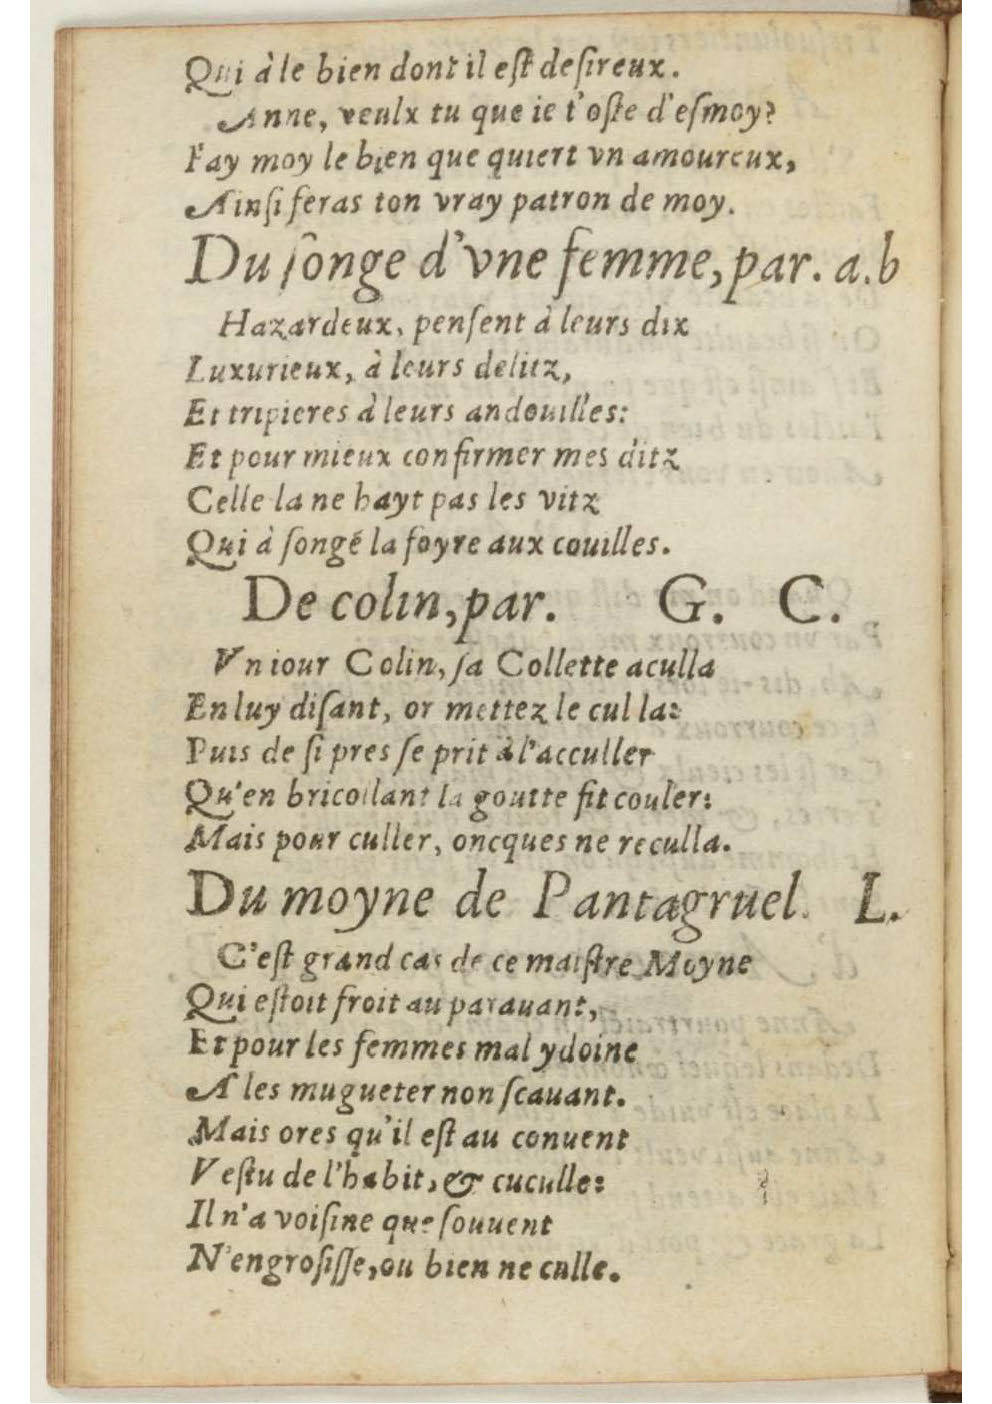 Qui à le bien dont il eſt deſireux.
Anne, veulx tu que ie t'oſte d'eſmoy?
Fay moy le bien que quiert vn amoureux,
Ainſi feras ton vray patron de moy.
Du ſonge d'vne femme, par. a.b
Hazardeux, penſent à leurs dix
Luxurieux, à leurs delitz,
Et tripieres à leurs andouilles:
Et pour mieux confirmer mes ditz
Celle la ne hayt pas les vitz
Qui à ſongé la foyre aux couilles.
De colin, par. G. C.
Vn iour Colin, ſa Collette aculla
En luy diſant, or mettez le cul la:
Puis de ſi pres ſe prit à l'acculler
Qu'en bricollant la goutte fit couler:
Mais pour culler, oncques ne reculla.
Du moyne de Pantagruel. L.
C'eſt grand cas de ce maiſtre Moyne
Qui eſtoit froit au parauant,
Et pour les femmes mal ydoine
A les mugueter non ſcauant.
Mais ores qu'il eſt au conuent
Veſtu de l'habit, & cuculle:
Il n'a voiſine que ſouuent
N'engroſiſſe, ou bien ne culle.